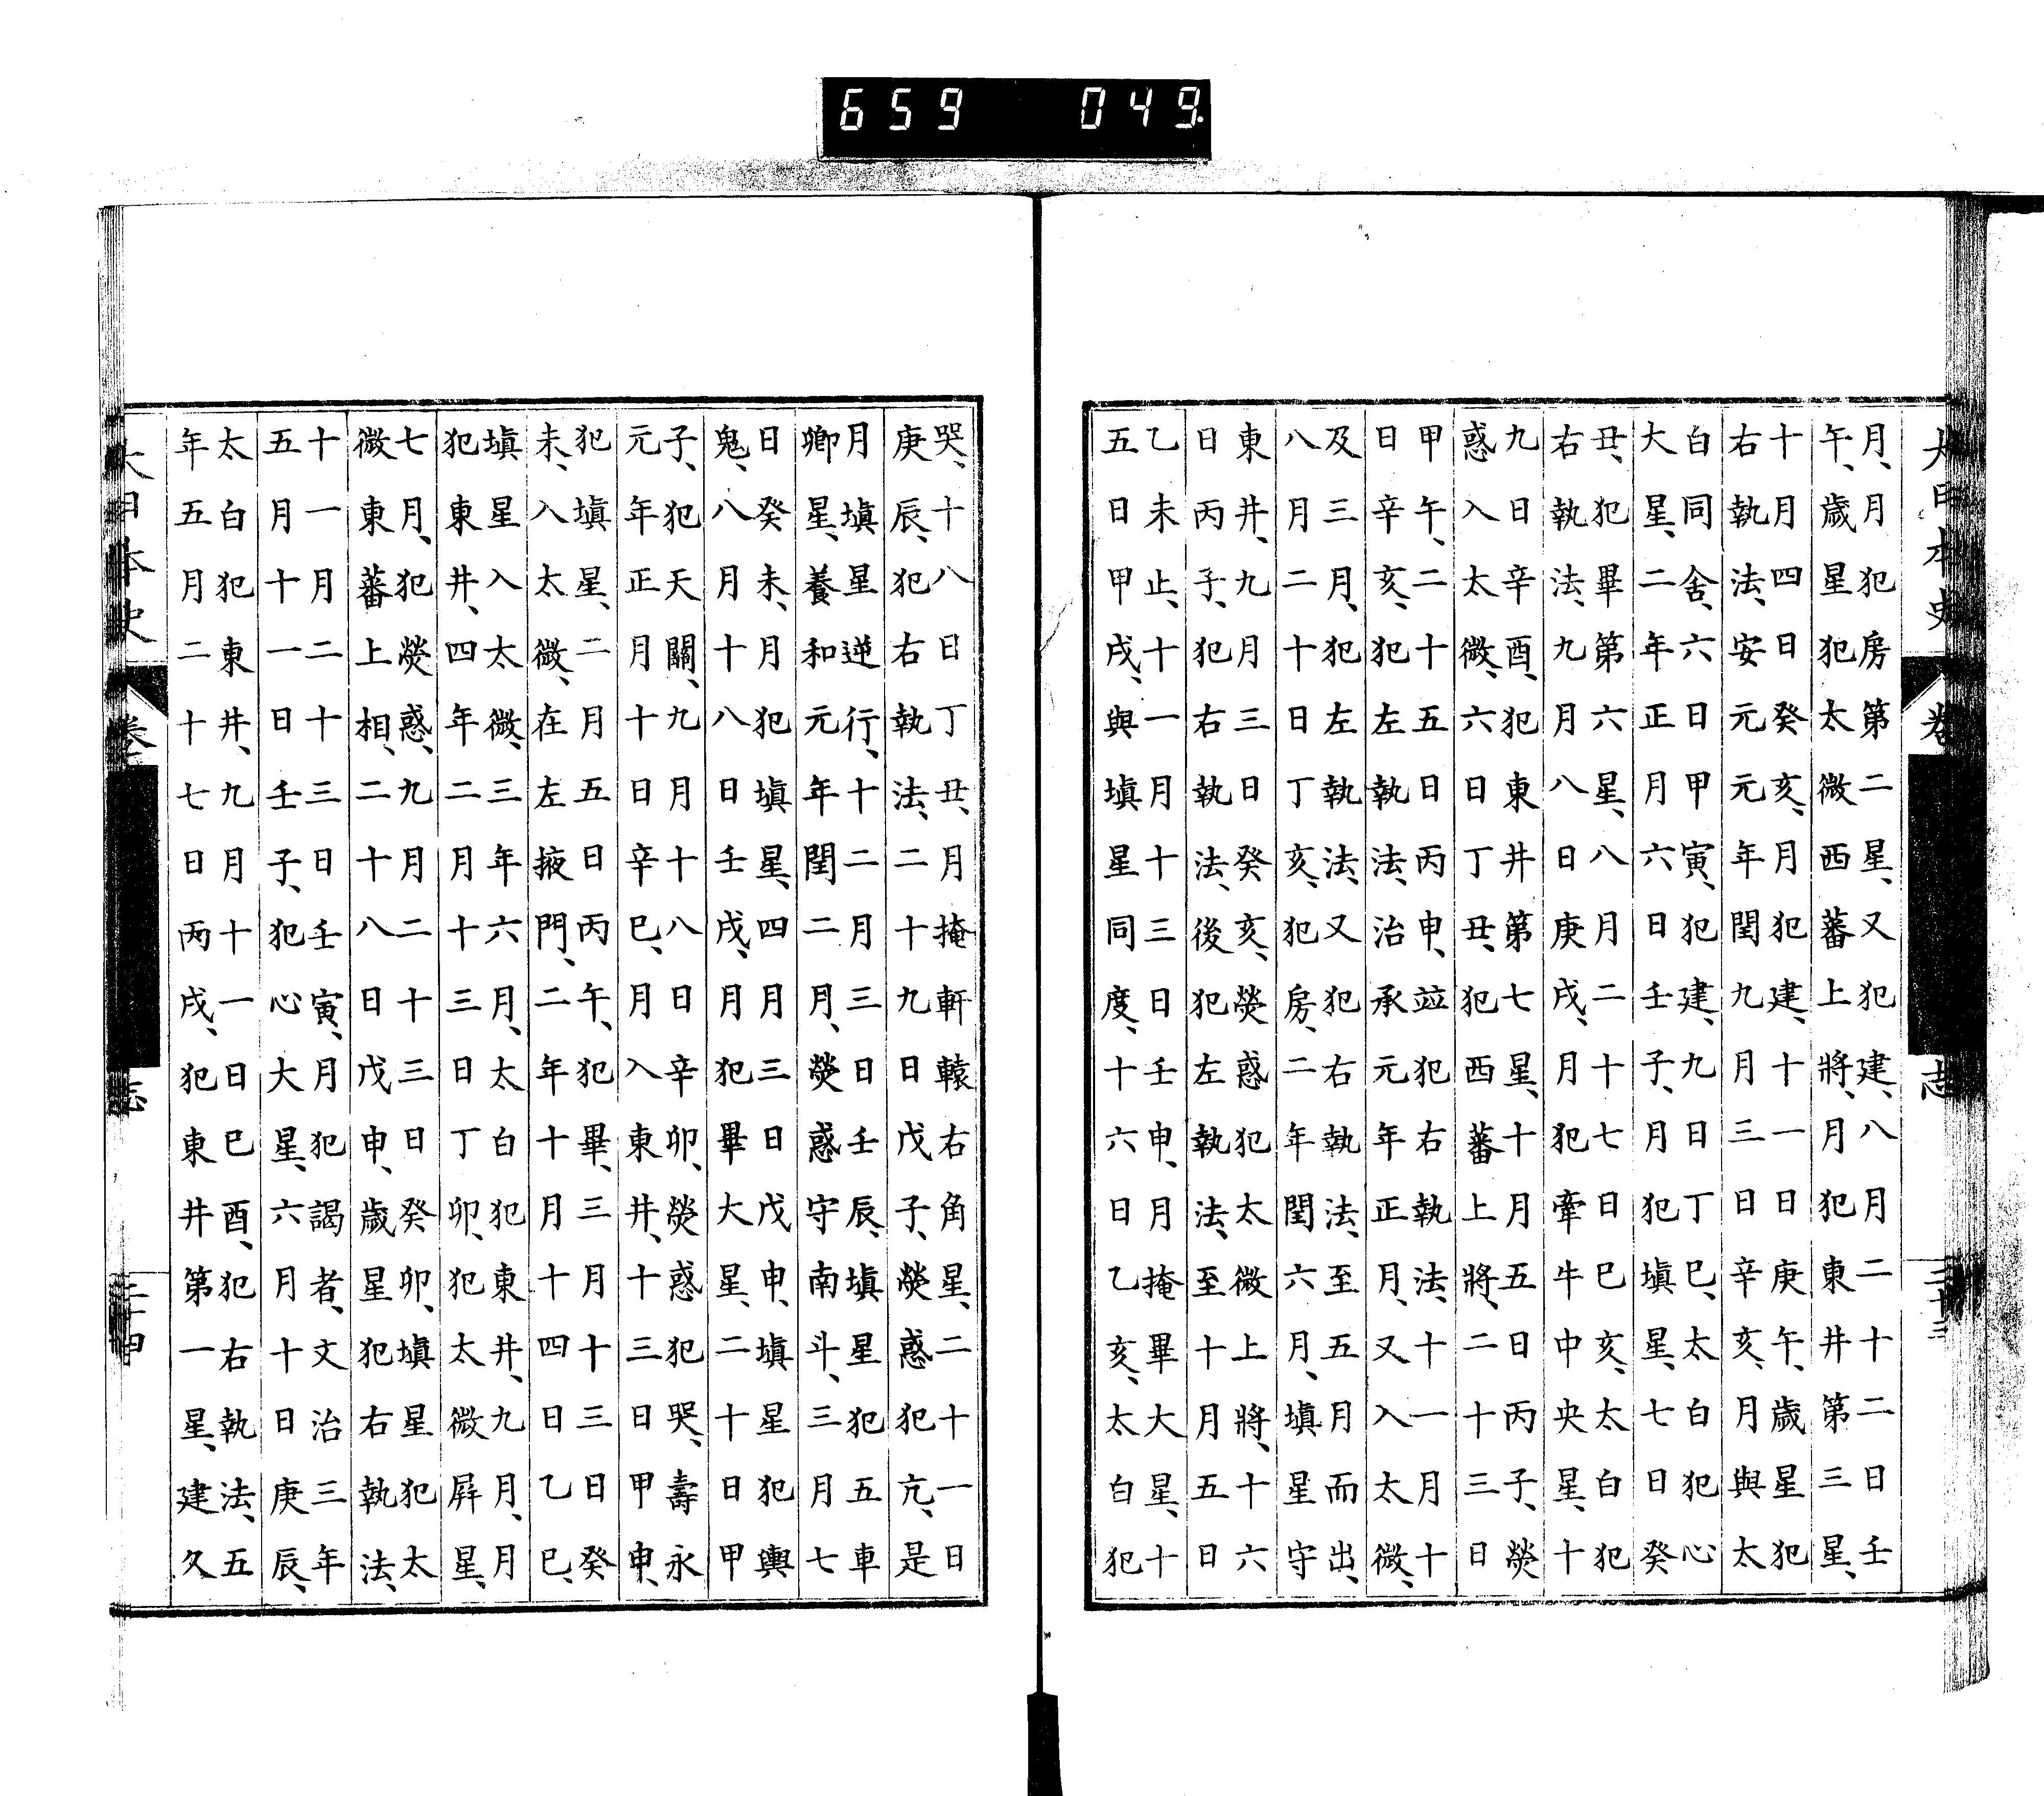 大日本史 卷 志 三十三
月、月犯房第二星、又犯建、八月二十二日壬
午、歲星犯太微西蕃上將、月犯東井第三星、
十月四日癸亥、月犯建、十一日庚午、歲星犯
右執法、安元元年閏九月三日辛亥、月與太
白同舍、六日甲寅、犯建、九日丁巳、太白犯心
大星、二年正月六日壬子、月犯塡星、七日癸
丑、犯畢第六星、八月二十七日巳亥、太白犯
右執法、九月八日庚戌、月犯牽牛中央星、十
九日辛酉、犯東井第七星、十月五日丙子、熒
惑入太微、六日丁丑、犯西蕃上將、二十三日
甲午、二十五日丙申、竝犯右執法、十一月十
日辛亥、犯左執法、治承元年正月、又入太微、
及三月、犯左執法、又犯右執法、至五月而出、
八月二十日丁亥、犯房、二年閏六月、塡星守
東井、九月三日癸亥、熒惑犯太微上將、十六
日丙子、犯右執法、後犯左執法、至十月五日
乙未止、十一月十三日壬申、月掩畢大星、十
五日甲戌、與塡星同度、十六日乙亥、太白犯
哭、十八日丁丑、月掩軒轅右角星、二十一日
庚辰、犯右執法、二十九日戊子、熒惑犯亢、是
月塡星逆行、十二月三日壬辰、塡星犯五車
卿星、養和元年閏二月、熒惑守南斗、三月七
日癸未、月犯塡星、四月三日戊申、塡星犯輿
鬼、八月十八日壬戌、月犯畢大星、二十日甲
子、犯天關、九月十八日辛卯、熒惑犯哭、壽永
元年正月十日辛巳、月入東井、十三日甲申、
犯塡星、二月五日丙午、犯畢、三月十三日癸
未、入太微、在左掖門、二年十月十四日乙巳、
塡星入太微、三年六月、太白犯東井、九月、月
犯東井、四年二月十三日丁卯、犯太微屛星、
七月、犯熒惑、九月二十三日癸卯、塡星犯太
微東蕃上相、二十八日戊申、歲星犯右執法、
十一月二十三日壬寅、月犯謁者、文治三年
五月十一日壬子、犯心大星、六月十日庚辰、
太白犯東井、九月十一日巳酉、犯右執法、五
年五月二十七日丙戌、犯東井第一星、建久
大日本史 卷 志 三十四
659 049